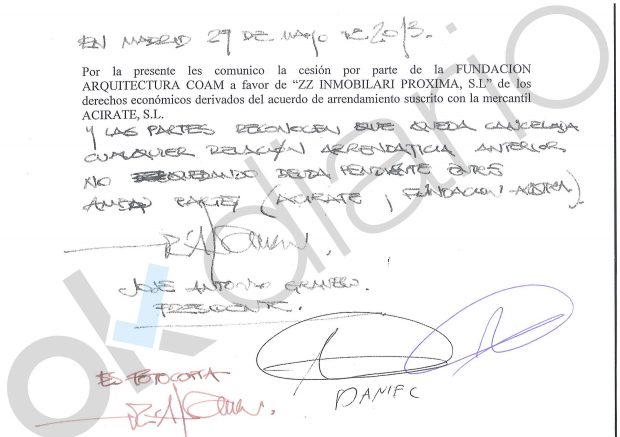 EN MADRID 29 DE MAYO DE 2013.
Por la presente les comunico la cesión por parte de la FUNDACION
ARQUITECTURA COAM a favor de "ZZ INMOBILARI PROXIMA, S.L" de los
derechos económicos derivados del acuerdo de arrendamiento suscrito con la mercantil
ACIRATE, S.L.
Y LAS PARTES RECONOCEN QUE QUEDA CANCELADA
CUALQUIER RELACIÓN ARRENDATICIA ANTERIOR
NO QUEDANDO DEUDA PENDIENTE ENTRE
PARTES (ACIRATE Y FUNDACION).
JOSE ANTONIO GRANERO.
PRESIDENTE.
ES FOTOCOPIA
DANIEL
okdiario